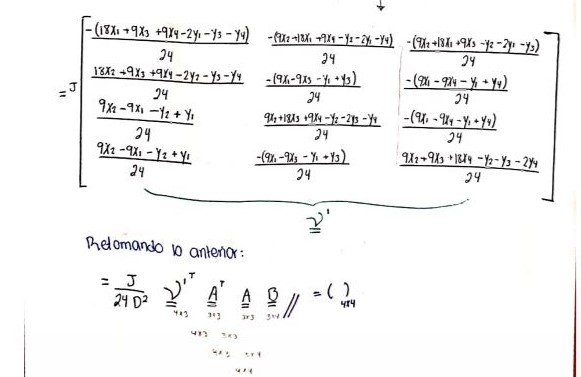 -(18x1 + 9x3 + 9x4 - 2y1 - y3 - y4) / 24   -(9x2 + 18x1 + 9x4 - y2 - 2y1 - y4) / 24   -(9x2 + 18x1 + 9x3 - y2 - 2y1 - y3) / 24
= J
18x2 + 9x3 + 9x4 - 2y2 - y3 - y4 / 24   -(9x1 - 9x3 - y1 + y3) / 24   -(9x1 - 9x4 - y1 + y4) / 24
9x2 - 9x1 - y2 + y1 / 24   9x2 + 18x3 + 9x4 - y2 - 2y3 - y4 / 24   -(9x1 - 9x4 - y1 + y4) / 24
9x2 - 9x1 - y2 + y1 / 24   -(9x1 - 9x3 - y1 + y3) / 24   9x2 + 9x3 + 18x4 - y2 - y3 - 2y4 / 24
V'
Retomando lo anterior:
= J / 24D² V'ᵀ Aᵀ A B // = ( ) 4x4
4x3 3x3 3x3 3x4
4x3 3x3
4x3 3x4
4x4